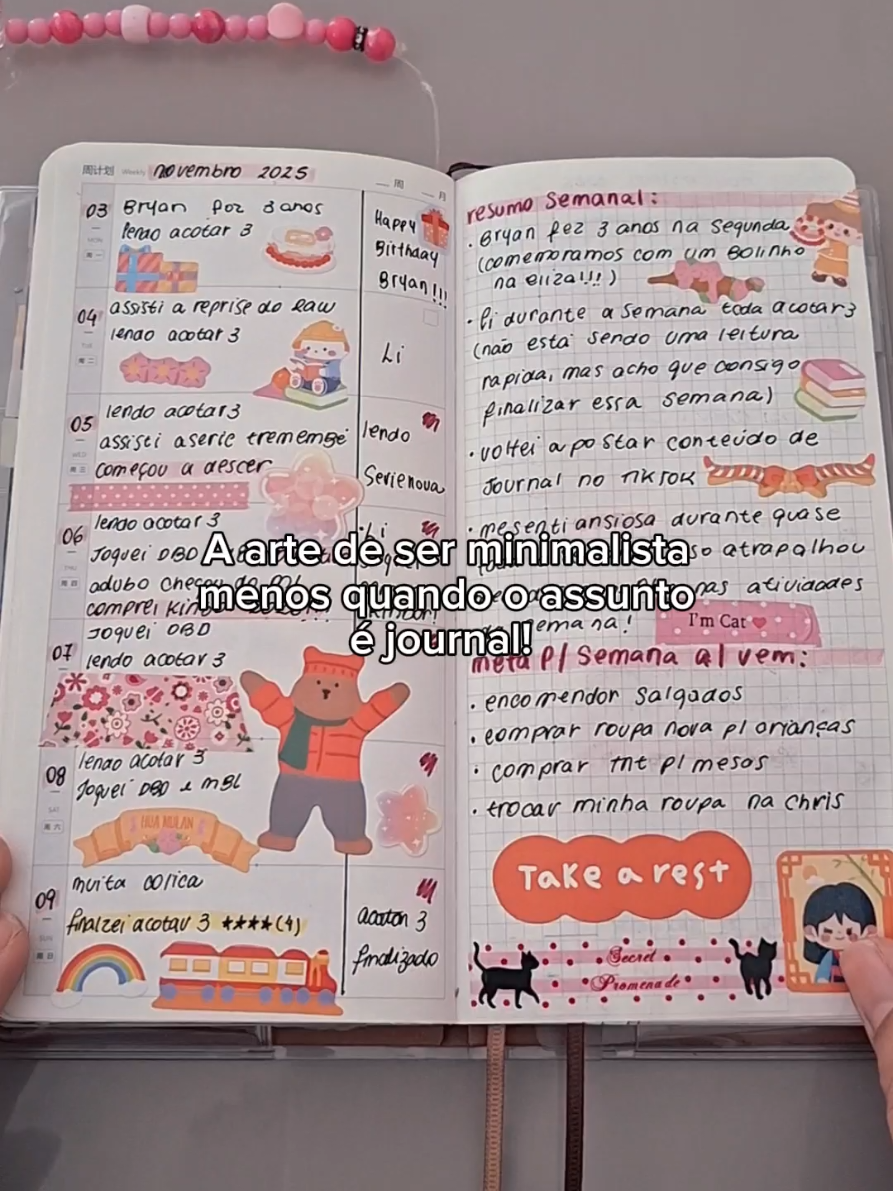 周计划 Weekly novembro 2025
周 月
03
MON
周一
Bryan fez 3 anos
lendo acotar 3
Happy
Birthday
Bryan!!!
04
TUE
周二
assisti a reprise do Raw
lendo acotar 3
Li
05
WED
周三
lendo acotar 3
assisti a serie tremembé
começou a descer
lendo
Serie nova
06
THU
周四
lendo acotar 3
Joguei DBD
adubo chegou
comprei
Li
07
Joguei DBD
lendo acotar 3
08
SAT
周六
lendo acotar 3
Joguei DBD e MBL
HUA MULAN
09
SUN
周日
muita colica
finalzei acotar 3 ★★★★(4)
acotar 3
finalizado
resumo Semanal:
· Bryan fez 3 anos na Segunda
(comemoramos com um Bolinho
na Eliza!!!)
· li durante a semana toda acotar 3
(não está sendo uma leitura
rapida, mas acho que consigo
finalizar essa semana)
· voltei a postar conteúdo de
Journal no TikTok
· me senti ansiosa durante quase
so atrapalhou
nas atividades
semana!
I'm Cat
meta p/ Semana q/ vem:
· encomendar Salgados
· comprar roupa nova p/ crianças
· comprar tnt p/ mesas
· trocar minha roupa na Chris
Take a rest
Secret
Promenade
A arte de ser minimalista
menos quando o assunto
é journal!